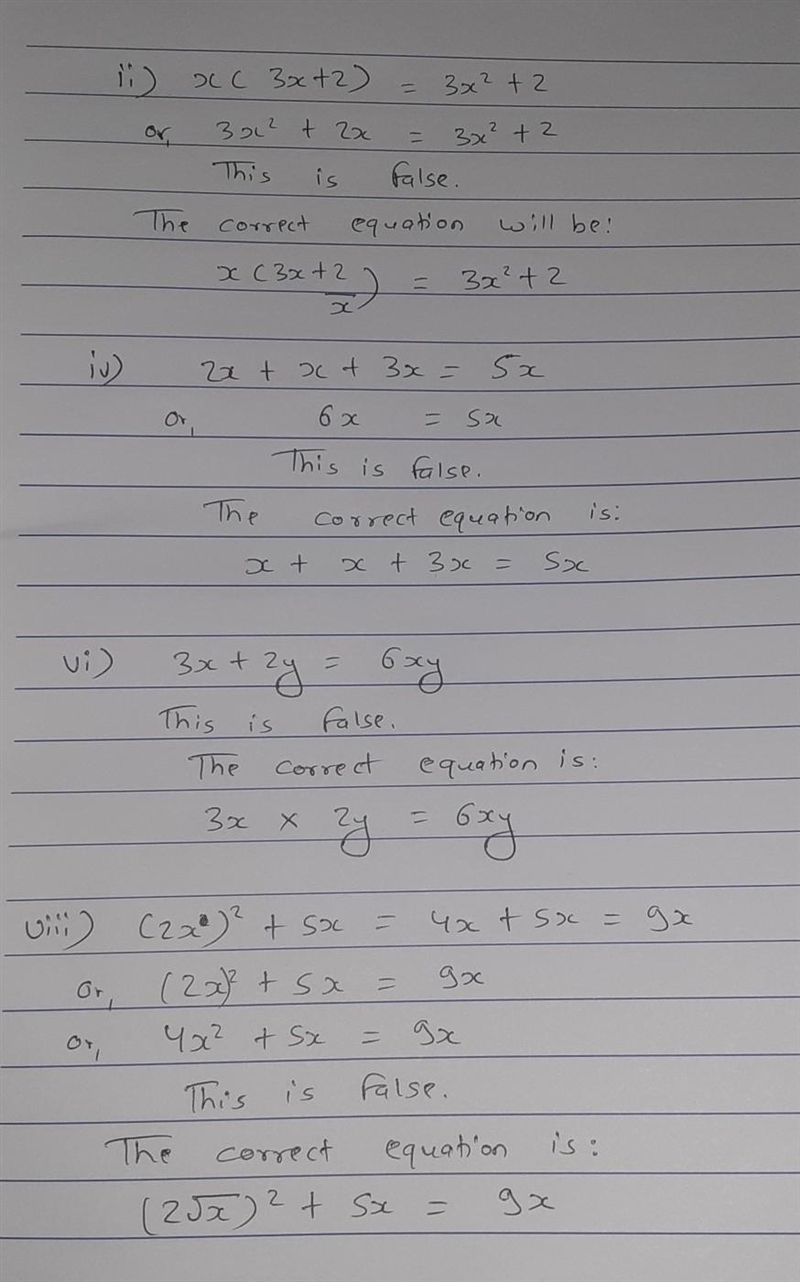 ii) x ( 3x+2) = 3x² + 2
or, 3x² + 2x = 3x² + 2
This is false.
The correct equation will be:
x (3x+2/x) = 3x² + 2
iv) 2x + x + 3x = 5x
or, 6x = 5x
This is false.
The correct equation is:
x + x + 3x = 5x
vi) 3x + 2y = 6xy
This is false.
The correct equation is:
3x × 2y = 6xy
viii) (2x)² + 5x = 4x + 5x = 9x
or, (2x)² + 5x = 9x
or, 4x² + 5x = 9x
This is false.
The correct equation is:
(2√x)² + 5x = 9x